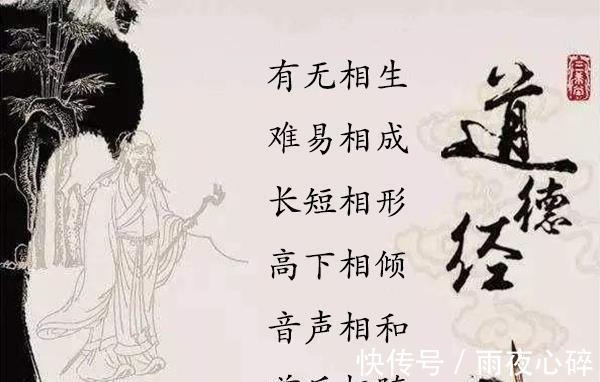 有无相生
难易相成
长短相形
高下相倾
音声相和
道德经
快传号 / 雨夜心碎